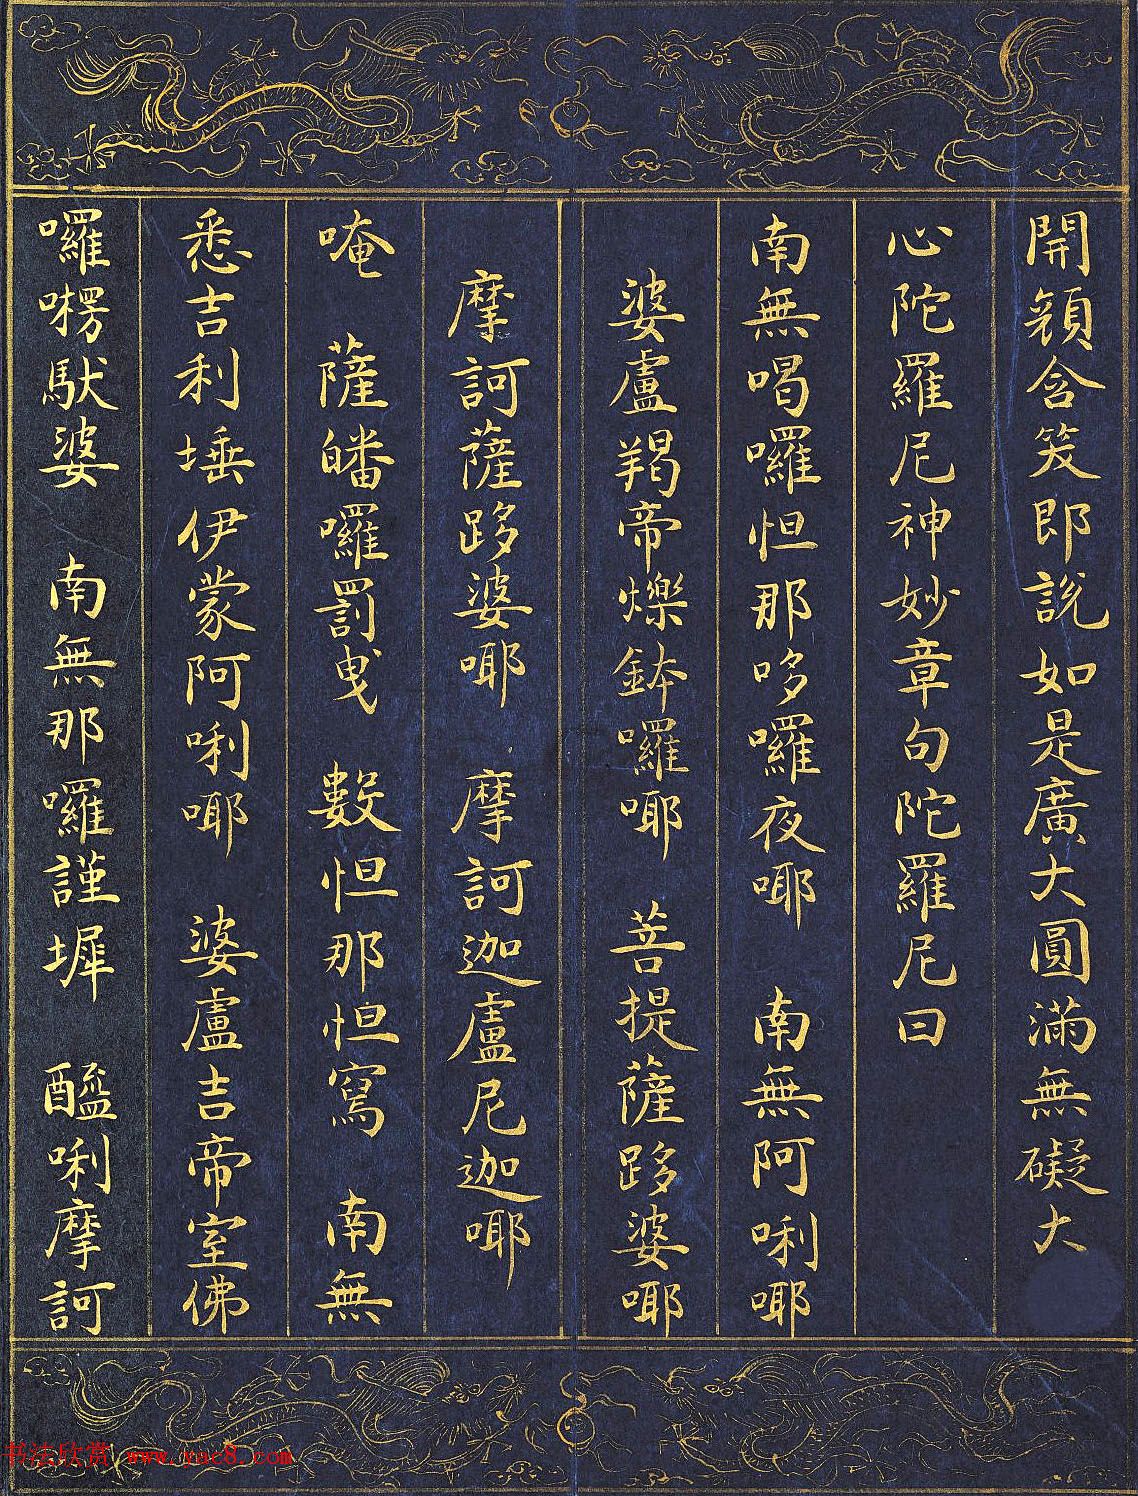 開顏含笑即說如是廣大圓滿無礙大
心陀羅尼神妙章句陀羅尼曰
南無喝囉怛那哆囉夜耶 南無阿唎耶
婆盧羯帝爍鉢囉耶 菩提薩跢婆耶
摩訶薩跢婆耶 摩訶迦盧尼迦耶
唵 薩皤囉罰曳 數怛那怛寫 南無
悉吉利埵伊蒙阿唎耶 婆盧吉帝室佛
囉楞馱婆 南無那囉謹墀 醯唎摩訶
书法欣赏 www.yac8.com